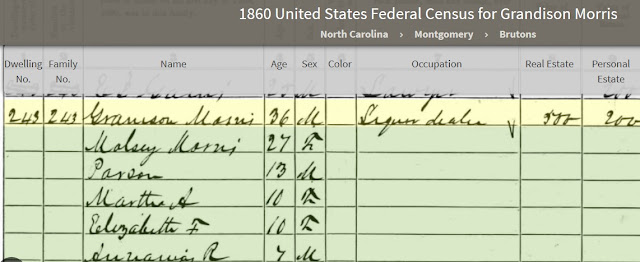 1860 United States Federal Census for Grandison Morris
North Carolina › Montgomery › Brutons
Dwelling No. Family No. Name Age Sex Color Occupation Real Estate Personal Estate
243 243 Granison Morris 36 M Liquor dealer 500 200
Malsey Morris 27 F
Parson 13 M
Martha A 10 F
Elizabeth F 10 F
R 7 M